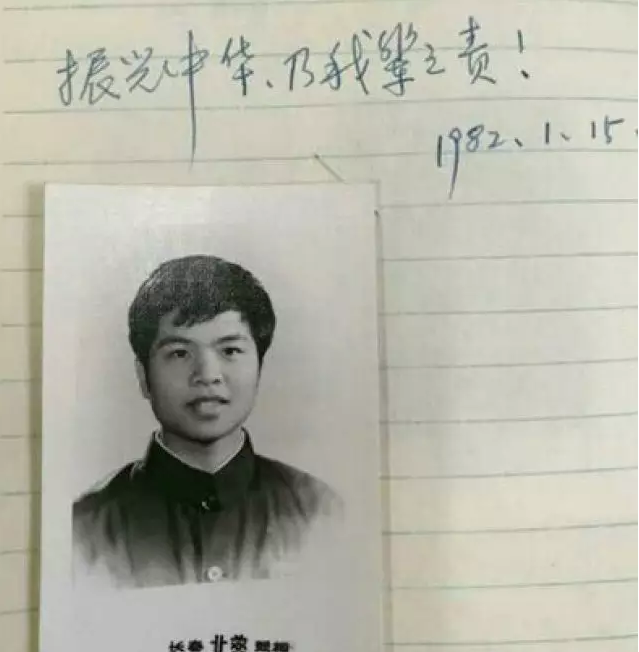 振兴中华、乃我辈之责!
1982、1、15.
长春 北